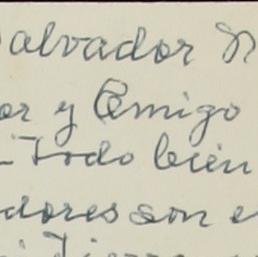 Salvador N
or y Amigo
Todo bien
dores son e